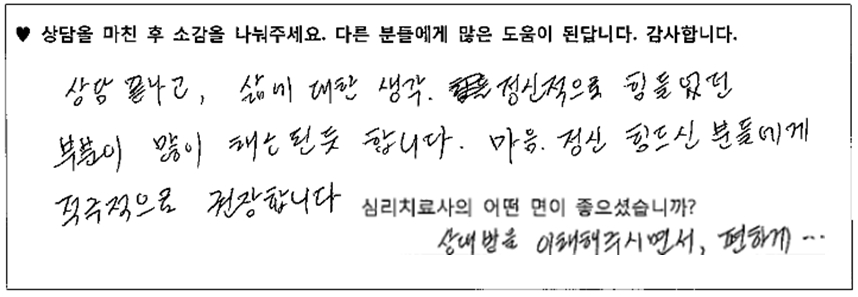 ♥ 상담을 마친 후 소감을 나눠주세요. 다른 분들에게 많은 도움이 된답니다. 감사합니다.
상담 끝나고, 삶에 대한 생각. 정신적으로 힘들었던
부분이 많이 해소된듯 합니다. 마음. 정신 힘드신 분들에게
적극적으로 권장합니다
심리치료사의 어떤 면이 좋으셨습니까?
상대방을 이해해주시면서, 편하게 …